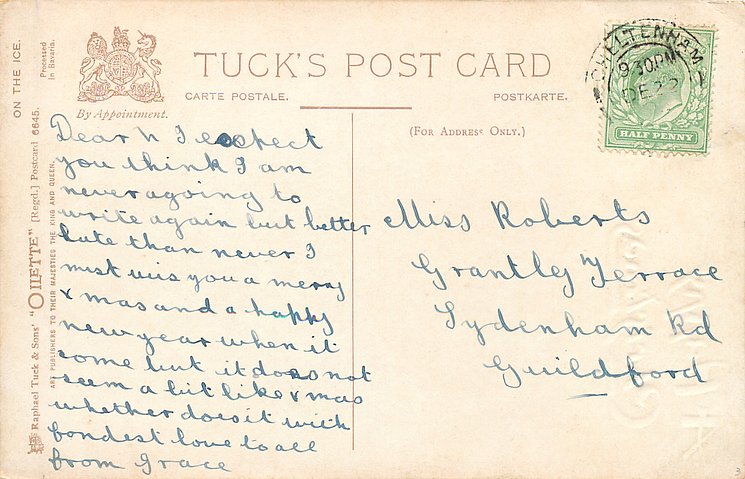 ON THE ICE.
Processed
in Bavaria.
By Appointment.
TUCK'S POST CARD
CARTE POSTALE.
POSTKARTE.
(FOR ADDRESS ONLY.)
CHELTENHAM
9 30PM
DE 22
HALF PENNY
Raphael Tuck & Sons' "OILETTE" [Regd.] Postcard 6645.
ART PUBLISHERS TO THEIR MAJESTIES THE KING AND QUEEN.
Dear N I expect
you think I am
never going to
write again but better
late than never I
must wis you a merry
x mas and a happy
new year when it
come but it does not
seem a bit like x mas
whether does it with
fondest love to all
from Grace
Miss Roberts
Grantley Terrace
Sydenham Rd
Guildford
3